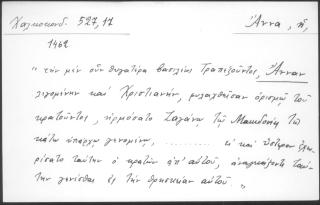 Χαλκοκονδ. 527,17 Ἄννα, ἡ,
1462
" τὴν μὲν οὖν θυγατέρα βασιλέως Τραπεζοῦντος, Ἄνναν
λεγομένην καὶ Χριστιανήν, φυλαχθεῖσαν ὁρισμῷ τοῦ
κρατοῦντος, ἡρμόσατο Ζαγάνῳ τῷ Μακεδονίας τῷ
κάτω ὑπάρχῳ γενομένῳ, .......... εἰ καὶ ὕστερον ἐχω-
ρίσατο ταύτην ὁ κρατῶν ἀπ' αὐτοῦ, ἀναγκάζοντα ταύ-
την γενέσθαι ἐς τὴν θρησκείαν αὐτοῦ "